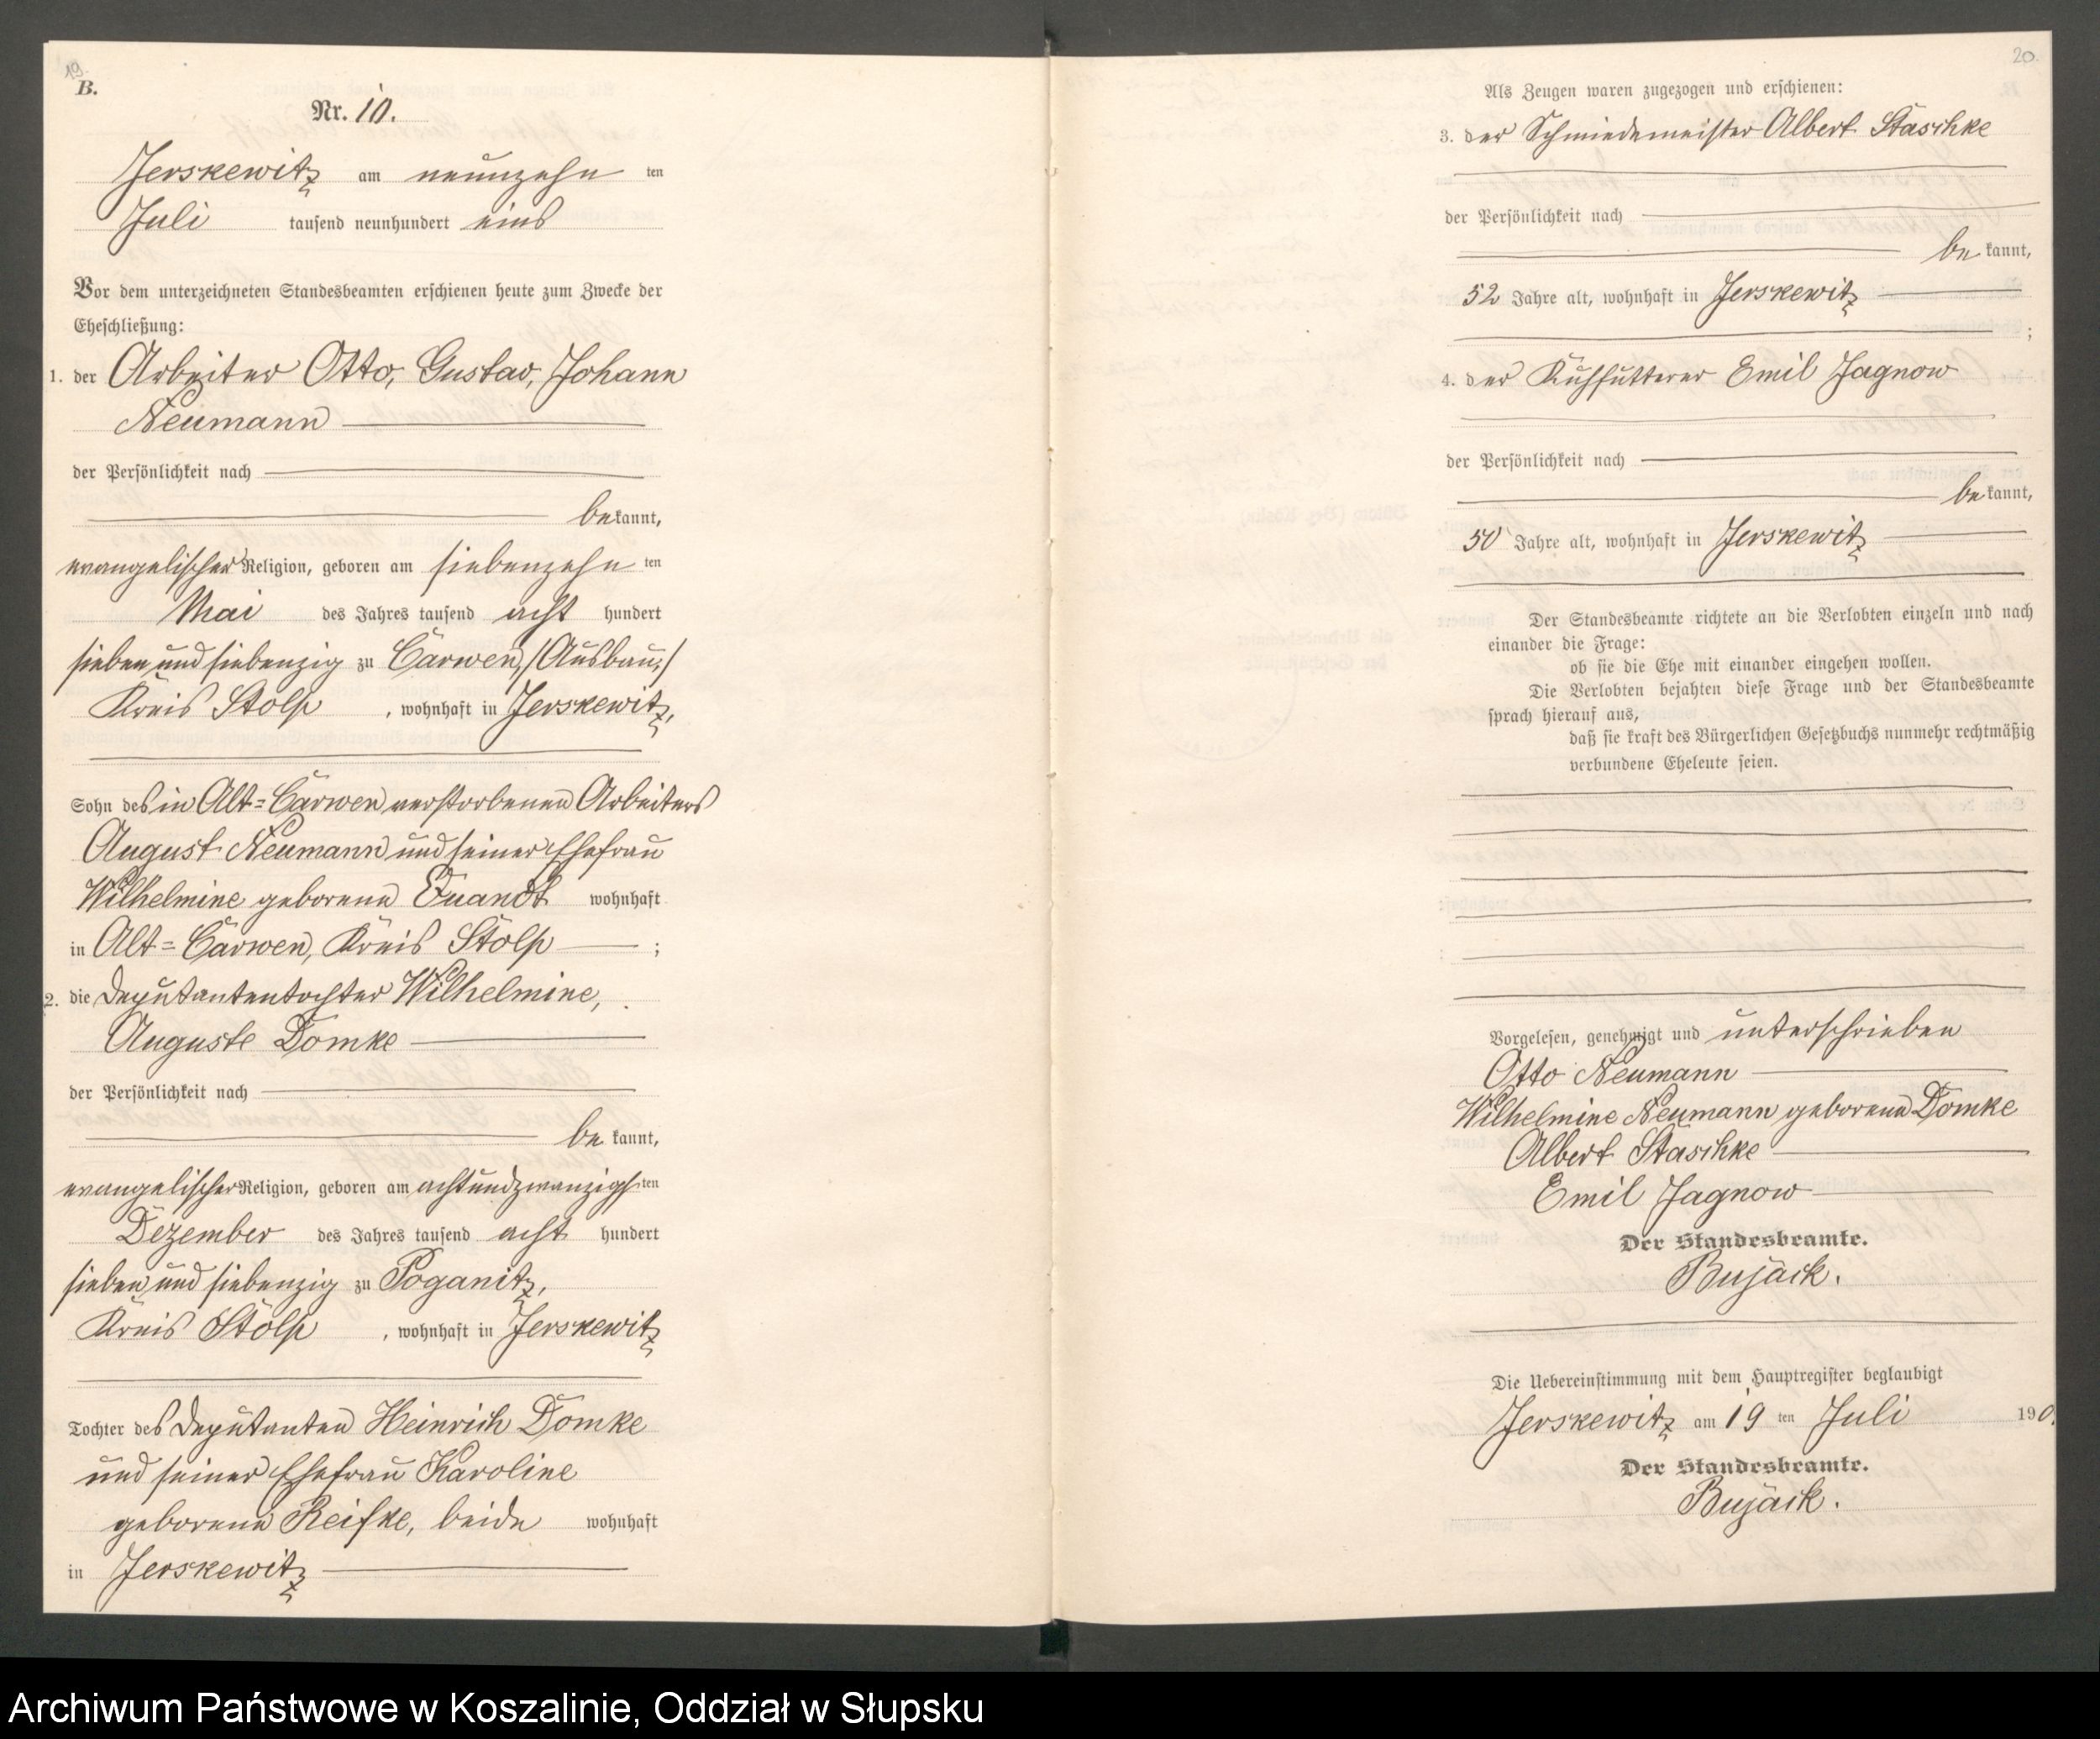 19.
B.
Nr. 10.
Jerskewitz am neunzehn ten
Juli tausend neunhundert eins
Vor dem unterzeichneten Standesbeamten erschienen heute zum Zwecke der
Eheschließung:
1. der Arbeiter Otto, Gustav, Johann
Neumann
der Persönlichkeit nach
bekannt,
evangelischer Religion, geboren am siebenzehn ten
Mai des Jahres tausend acht hundert
sieben und siebenzig zu Carwen, /Ausbau,/
Kreis Stolp, wohnhaft in Jerskewitz,
Sohn des in Alt=Carwen verstorbenen Arbeiters
August Neumann und seiner Ehefrau
Wilhelmine geborene Quandt wohnhaft
in Alt=Carwen, Kreis Stolp ;
2. die Deputantentochter Wilhelmine,
Auguste Domke
der Persönlichkeit nach
bekannt,
evangelischer Religion, geboren am achtundzwanzigsten
Dezember des Jahres tausend acht hundert
sieben und siebenzig zu Poganitz,
Kreis Stolp, wohnhaft in Jerskewitz
Tochter des Deputanten Heinrich Domke
und seiner Ehefrau Karoline
geborene Reifke, beide wohnhaft
in Jerskewitz
20.
Als Zeugen waren zugezogen und erschienen:
3. der Schmiedemeister Albert Staschke
der Persönlichkeit nach
bekannt,
52 Jahre alt, wohnhaft in Jerskewitz
;
4. der Kuhfütterer Emil Jagnow
der Persönlichkeit nach
bekannt,
50 Jahre alt, wohnhaft in Jerskewitz
Der Standesbeamte richtete an die Verlobten einzeln und nach
einander die Frage:
ob sie die Ehe mit einander eingehen wollen.
Die Verlobten bejahten diese Frage und der Standesbeamte
sprach hierauf aus,
daß sie kraft des Bürgerlichen Gesetzbuchs nunmehr rechtmäßig
verbundene Eheleute seien.
Vorgelesen, genehmigt und unterschrieben
Otto Neumann
Wilhelmine Neumann geborene Domke
Albert Staschke
Emil Jagnow
Der Standesbeamte.
Bujack.
Die Uebereinstimmung mit dem Hauptregister beglaubigt
Jerskewitz am 19 ten Juli 190
Der Standesbeamte.
Bujack.
Archiwum Państwowe w Koszalinie, Oddział w Słupsku